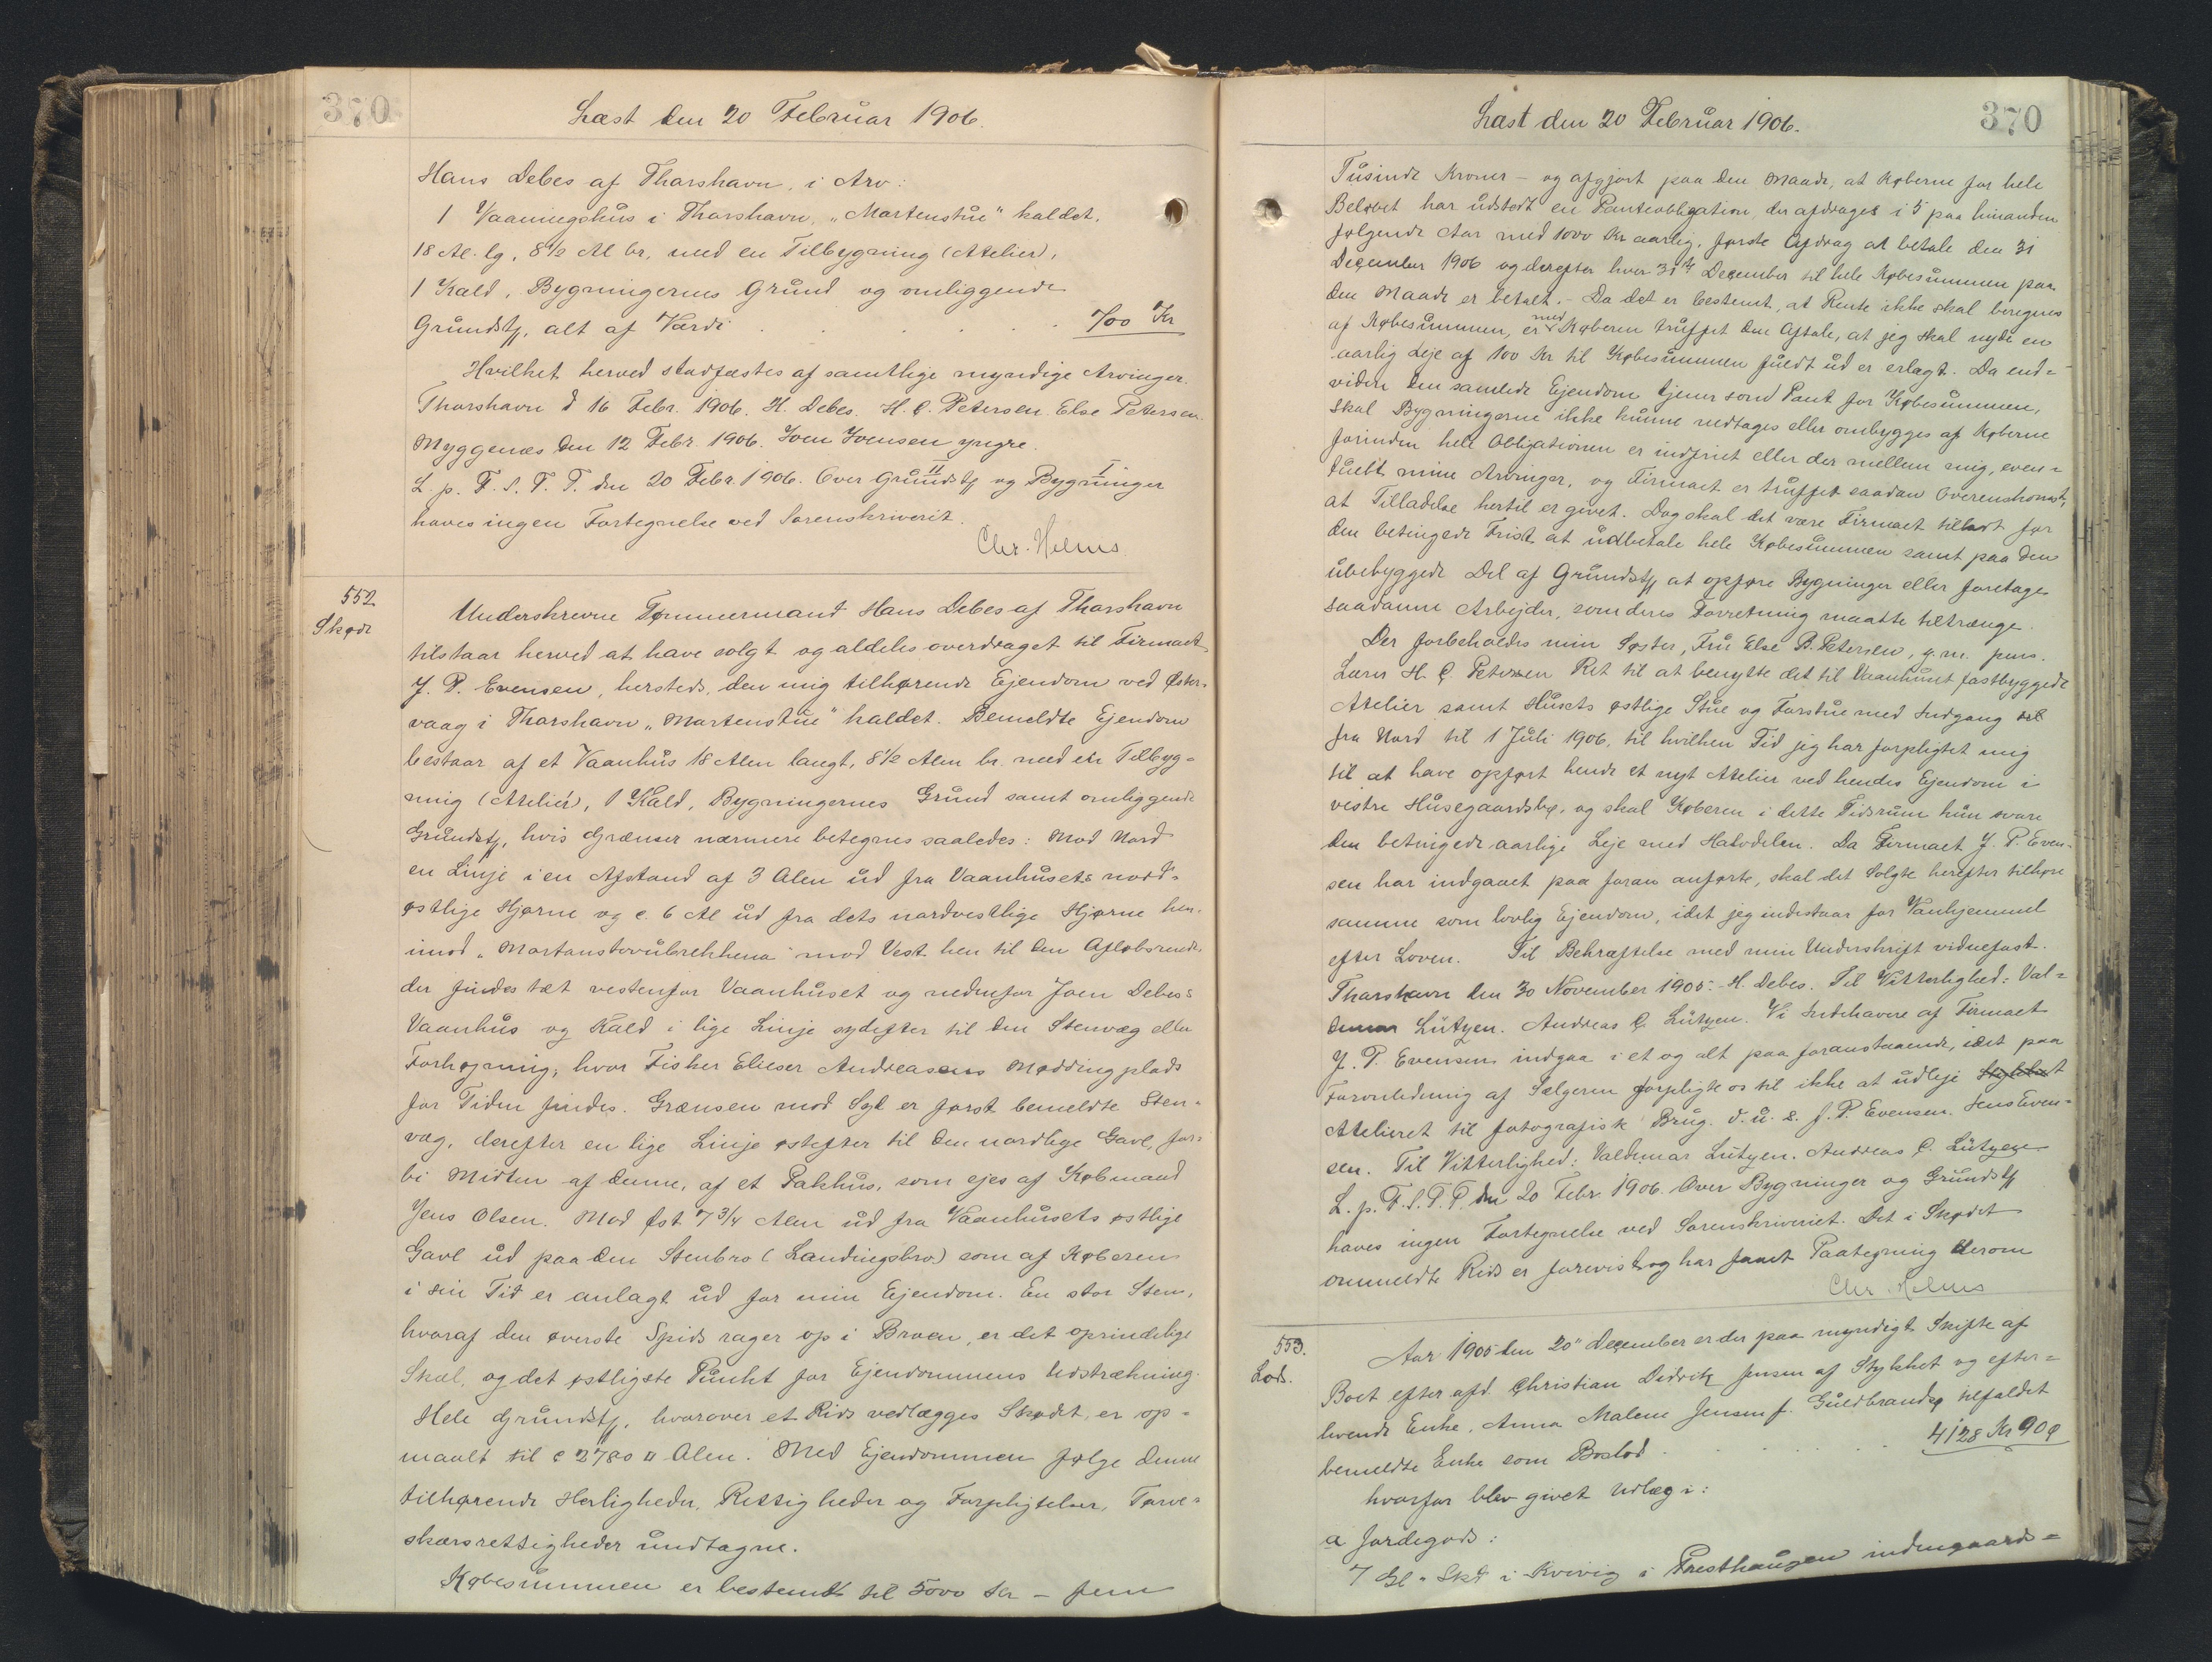 370
Læst den 20 Februar 1906.
Hans Debes af Thorshavn, i Arv:
1 Vaaningshus i Thorshavn, „Martenstue" kaldet,
18 Al. lg, 8½ Al br, med en Tilbygning (Atelier),
1 Kald, Bygningernes Grund og omliggende
Grundstk, alt af Værdi . . . . . . 700 Kr
Hvilket herved stadfæstes af samtlige myndige Arvinger.
Thorshavn d 16 Febr. 1906. H. Debes. H. C. Petersen. Else Petersen.
Myggenæs den 12 Febr. 1906. Joen Joensen yngre.
L. p. F. S. T. T. den 20 Febr. 1906. Over Grundstk II og Bygninger I
haves ingen Fortegnelse ved Sorenskriverit.
Chr. Holms
552.
Skøde
Underskrevne Tømmermand Hans Debes af Thorshavn
tilstaar herved at have solgt og aldeles overdraget til Firmaet
J. P. Evensen, hersteds, den mig tilhørende Ejendom ved Øster-
vaag i Thorshavn „Martenstue" kaldet. Bemeldte Ejendom
bestaar af et Vaanhus 18 Alen langt, 8½ Alen br. med en Tilbyg-
ning (Atelier), 1 Kald, Bygningernes Grund samt omliggende
Grundstk, hvis Grænser nærmere betegnes saaledes: Mod Nord
en Linje i en Afstand af 3 Alen ud fra Vaanhusets nord-
østlige Hjørne og c. 6 Al ud fra dets nordvestlige Hjørne hen-
imod „Martanstovubrekkena" mod Vest hen til den Afløbsrende,
der findes tæt vestenfor Vaanhuset og nedenfor Joen Debes's
Vaanhus og Kald i lige Linje sydefter til den Stenvæg eller
Forhøjning, hvor Fisker Elieser Andreasens Møddingplads
for Tiden findes. Grænsen mod Syd er først bemeldte Sten-
væg, derefter en lige Linje østefter til den nordlige Gavl, for-
bi Midten af denne, af et Pakhus, som ejes af Købmand
Jens Olsen. Mod Øst 7¾ Alen ud fra Vaanhusets østlige
Gavl ud paa den Stenbro (Landingsbro) som af Køberen
i sin Tid er anlagt ud for min Ejendom. En stor Sten,
hvoraf den øverste Spids rager op i Broen, er det oprindelige
Skæl, og det østligste Punkt for Ejendommens Udstrækning.
Hele Grundstk, hvorover et Rids vedlægges Skødet, er op-
maalt til c 2780 □ Alen. Med Ejendommen følge denne
tilhørende Herligheder, Rettigheder og Forpligtelser, Tørve-
skærsrettigheder undtagne.
Købesummen er bestemt til 5000 Kr — fem
370
Læst den 20 Februar 1906.
Tusinde Kroner — og afgjort paa den Maade, at Køberne for hele
Beløbet har udstedt en Panteobligation, der afdrages i 5 paa hinanden
følgende Aar med 1000 Kr aarlig, første Afdrag at betale den 31
December 1906 og derefter hver 31te December til hele Købesummen paa
den Maade er betalt. — Da det er bestemt, at Rente ikke skal beregnes
af Købesummen, er med Køberen truffet den Aftale, at jeg skal nyde en
aarlig Leje af 100 Kr til Købesummen fuldt ud er erlagt. Da end-
videre den samlede Ejendom tjener som Pant for Købesummen,
skal Bygningerne ikke kunne nedtages eller ombygges af Køberne
forinden hele Obligationen er indfriet eller der mellem mig, even-
tuelt mine Arvinger, og Firmaet er truffet saadan Overenskomst,
at Tilladelse hertil er givet. Dog skal det være Firmaet tilladt før
den betingede Frist at udbetale hele Købesummen samt paa den
ubebyggede Del af Grundstk at opføre Bygninger eller foretage
saadanne Arbejder, som deres Forretning maatte tiltrænge.
Der forbeholdes min Søster, Fru Else B. Petersen, g. m. pens.
Lærer H. C. Petersen Ret til at benytte det til Vaanhuset fastbyggede
Atelier samt Husets østlige Stue og Forstue med Indgang
fra Nord til 1 Juli 1906, til hvilken Tid jeg har forpligtet mig
til at have opført hende et nyt Atelier ved hendes Ejendom i
vestre Husegaardsbø, og skal Køberen i dette Tidsrum kun svare
den betingede aarlige Leje med Halvdelen. Da Firmaet J. P. Even-
sen har indgaaet paa foran anførte, skal det Solgte herefter tilhøre
samme som lovlig Ejendom, idet jeg indestaar for Vanhjemmel
efter Loven. Til Bekræftelse med min Underskrift vidnefast.
Thorshavn den 30 November 1905. H. Debes. Til Vitterlighed: Val-
demar Lützen. Andreas C. Lützen. Vi Indehavere af Firmaet
J. P. Evensen indgaa i et og alt paa foranstaaende, idet paa
Foranledning af Sælgeren forpligte os til ikke at udleje
Atelieret til fotografisk Brug. d. u. s. J. P. Evensen. Jens Even-
sen. Til Vitterlighed: Valdemar Lützen. Andreas C. Lützen
L. p. F. S. T. T. den 20 Febr. 1906. Over Bygninger og Grundstk
haves ingen Fortegnelse ved Sorenskriveriet. Det i Skødet
ommeldte Rids er forevist og har faaet Paategning herom
Chr. Holms
553.
Lod.
Aar 1905 den 20" December er der paa myndigt Skifte af
Boet efter afd. Christian Didrik Jensen af Stykket og efter-
levende Enke, Anna Malene Jensen f. Guldbrandsø tilfaldet
bemeldte Enke som Boslod . . . . . . 4128 Kr 90 Ø
hvorfor blev givet Udlæg i:
a Jordegods:
7 Gl. Skd i Kvivig i Præsthaugen indengaards-